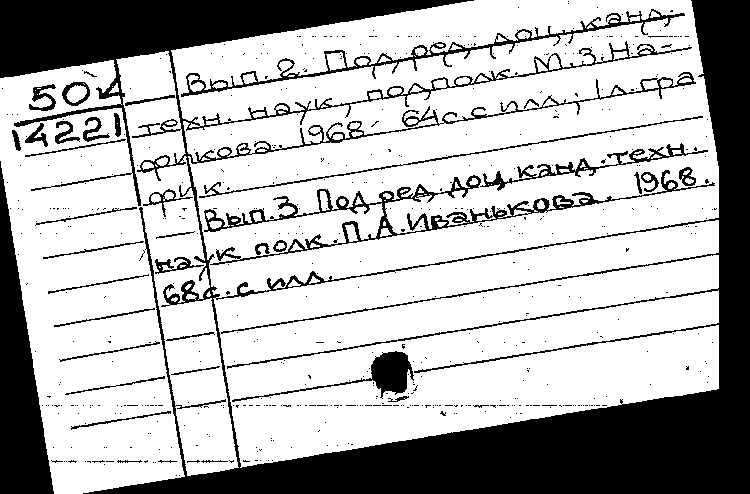 50✓
14221
Вып. 2. Под ред. доц., канд.
техн. наук, подполк. М.З.На-
фикова. 1968. 64с. с илл.; 1л.гра-
фик.
Вып.3 Под ред. доц. канд. техн.
наук полк. П.А.Иванькова. 1968.
68с. с илл.